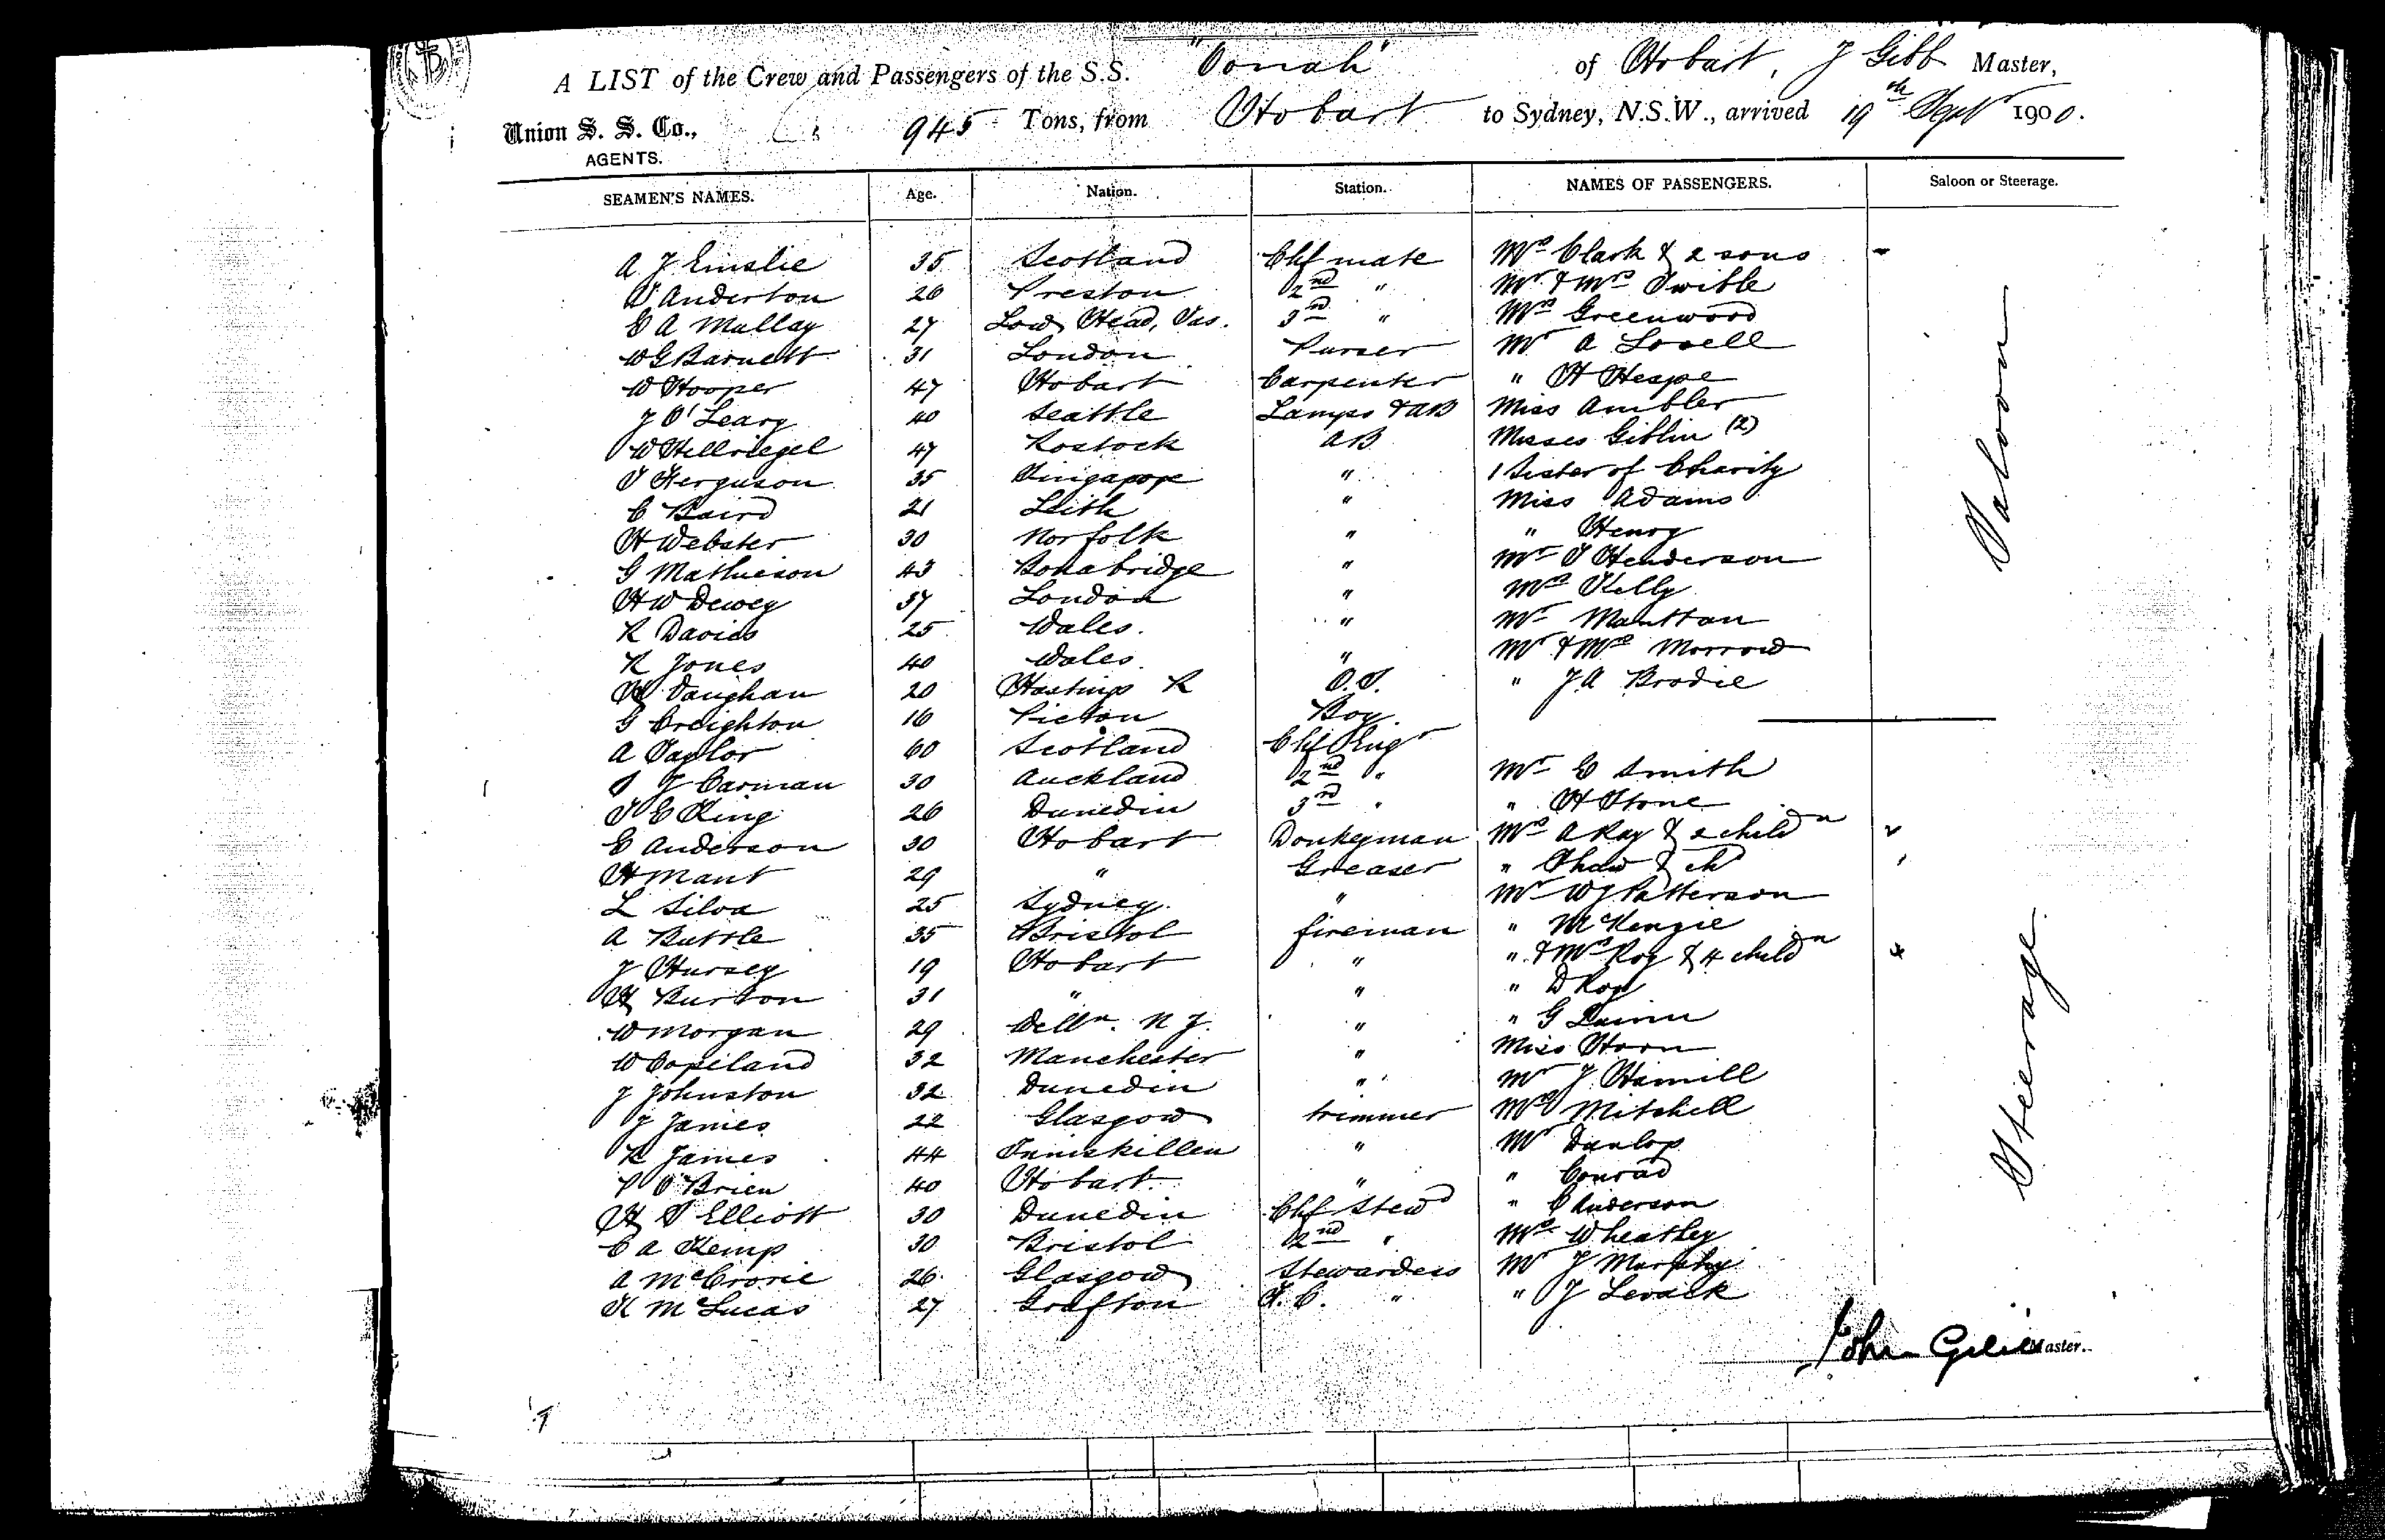 A LIST of the Crew and Passengers of the S.S. "Oonah" of Hobart, J Gibb Master,
Union S. S. Co., AGENTS. 945 Tons, from Hobart to Sydney, N.S.W., arrived 19th Sept 1900.
SEAMEN'S NAMES. Age. Nation. Station. NAMES OF PASSENGERS. Saloon or Steerage.
A J Emslie 35 Scotland Chf mate Mrs Clark & 2 sons
Anderton 26 Preston 2nd " Mr & Mrs Twible
E A Mullay 27 Low Head, Tas. 3rd " Mrs Greenwood
W G Barnett 31 London Purser Mr A Lovell
W Hooper 47 Hobart Carpenter " H Hespe
J O'Leary 40 Seattle Lamps & AB Miss Ambler
W Hellriegel 47 Rostock AB Misses Giblin (2)
T Ferguson 35 Singapore " 1 Sister of Charity
C Baird 21 Leith " Miss Adams
H Webster 30 Norfolk " " Henry
G Mathieson 43 Bonabridge " Mr T Henderson
H W Dewey 37 London " Mrs Kelly
R Davies 25 Wales. " Mr Mantton
R Jones 40 Wales. " Mr & Mrs Morrow
H Vaughan 20 Hastings R O.S. " J A Brodie
Saloon
G Creighton 16 Picton Boy.
A Taylor 60 Scotland Chf Engr
J Carman 30 Auckland 2nd " Mr E Smith
T E King 26 Dunedin 3rd " " H Stone
E Anderson 30 Hobart Donkeyman Mrs A Ray & 2 childn
H Mant 29 " Greaser " Shaw & ch
L Silva 25 Sydney. " Mr W J Patterson
A Buttle 35 Bristol fireman " McKenzie
J Hursey 19 Hobart " " & Mrs Roy & 4 childn
H Burton 31 " " " D Roy
W Morgan 29 Welln. N Z. " " G Quinn
W Copeland 32 Manchester " Miss Horn
J Johnston 32 Dunedin " Mr J Hamill
J James 22 Glasgow trimmer Mrs Mitchell
R James 44 Inniskillen " Mr Dunlop
P O'Brien 40 Hobart " " Conrad
H T Elliott 30 Dunedin Chf Stewd " C Anderson
C A Kemp 30 Bristol 2nd " Mrs Wheatley
A McCrorie 26 Glasgow Stewardess Mr J Murphy
K M Lucas 27 Grafton F. C. " " J Levack
Steerage
John Gibb Master.